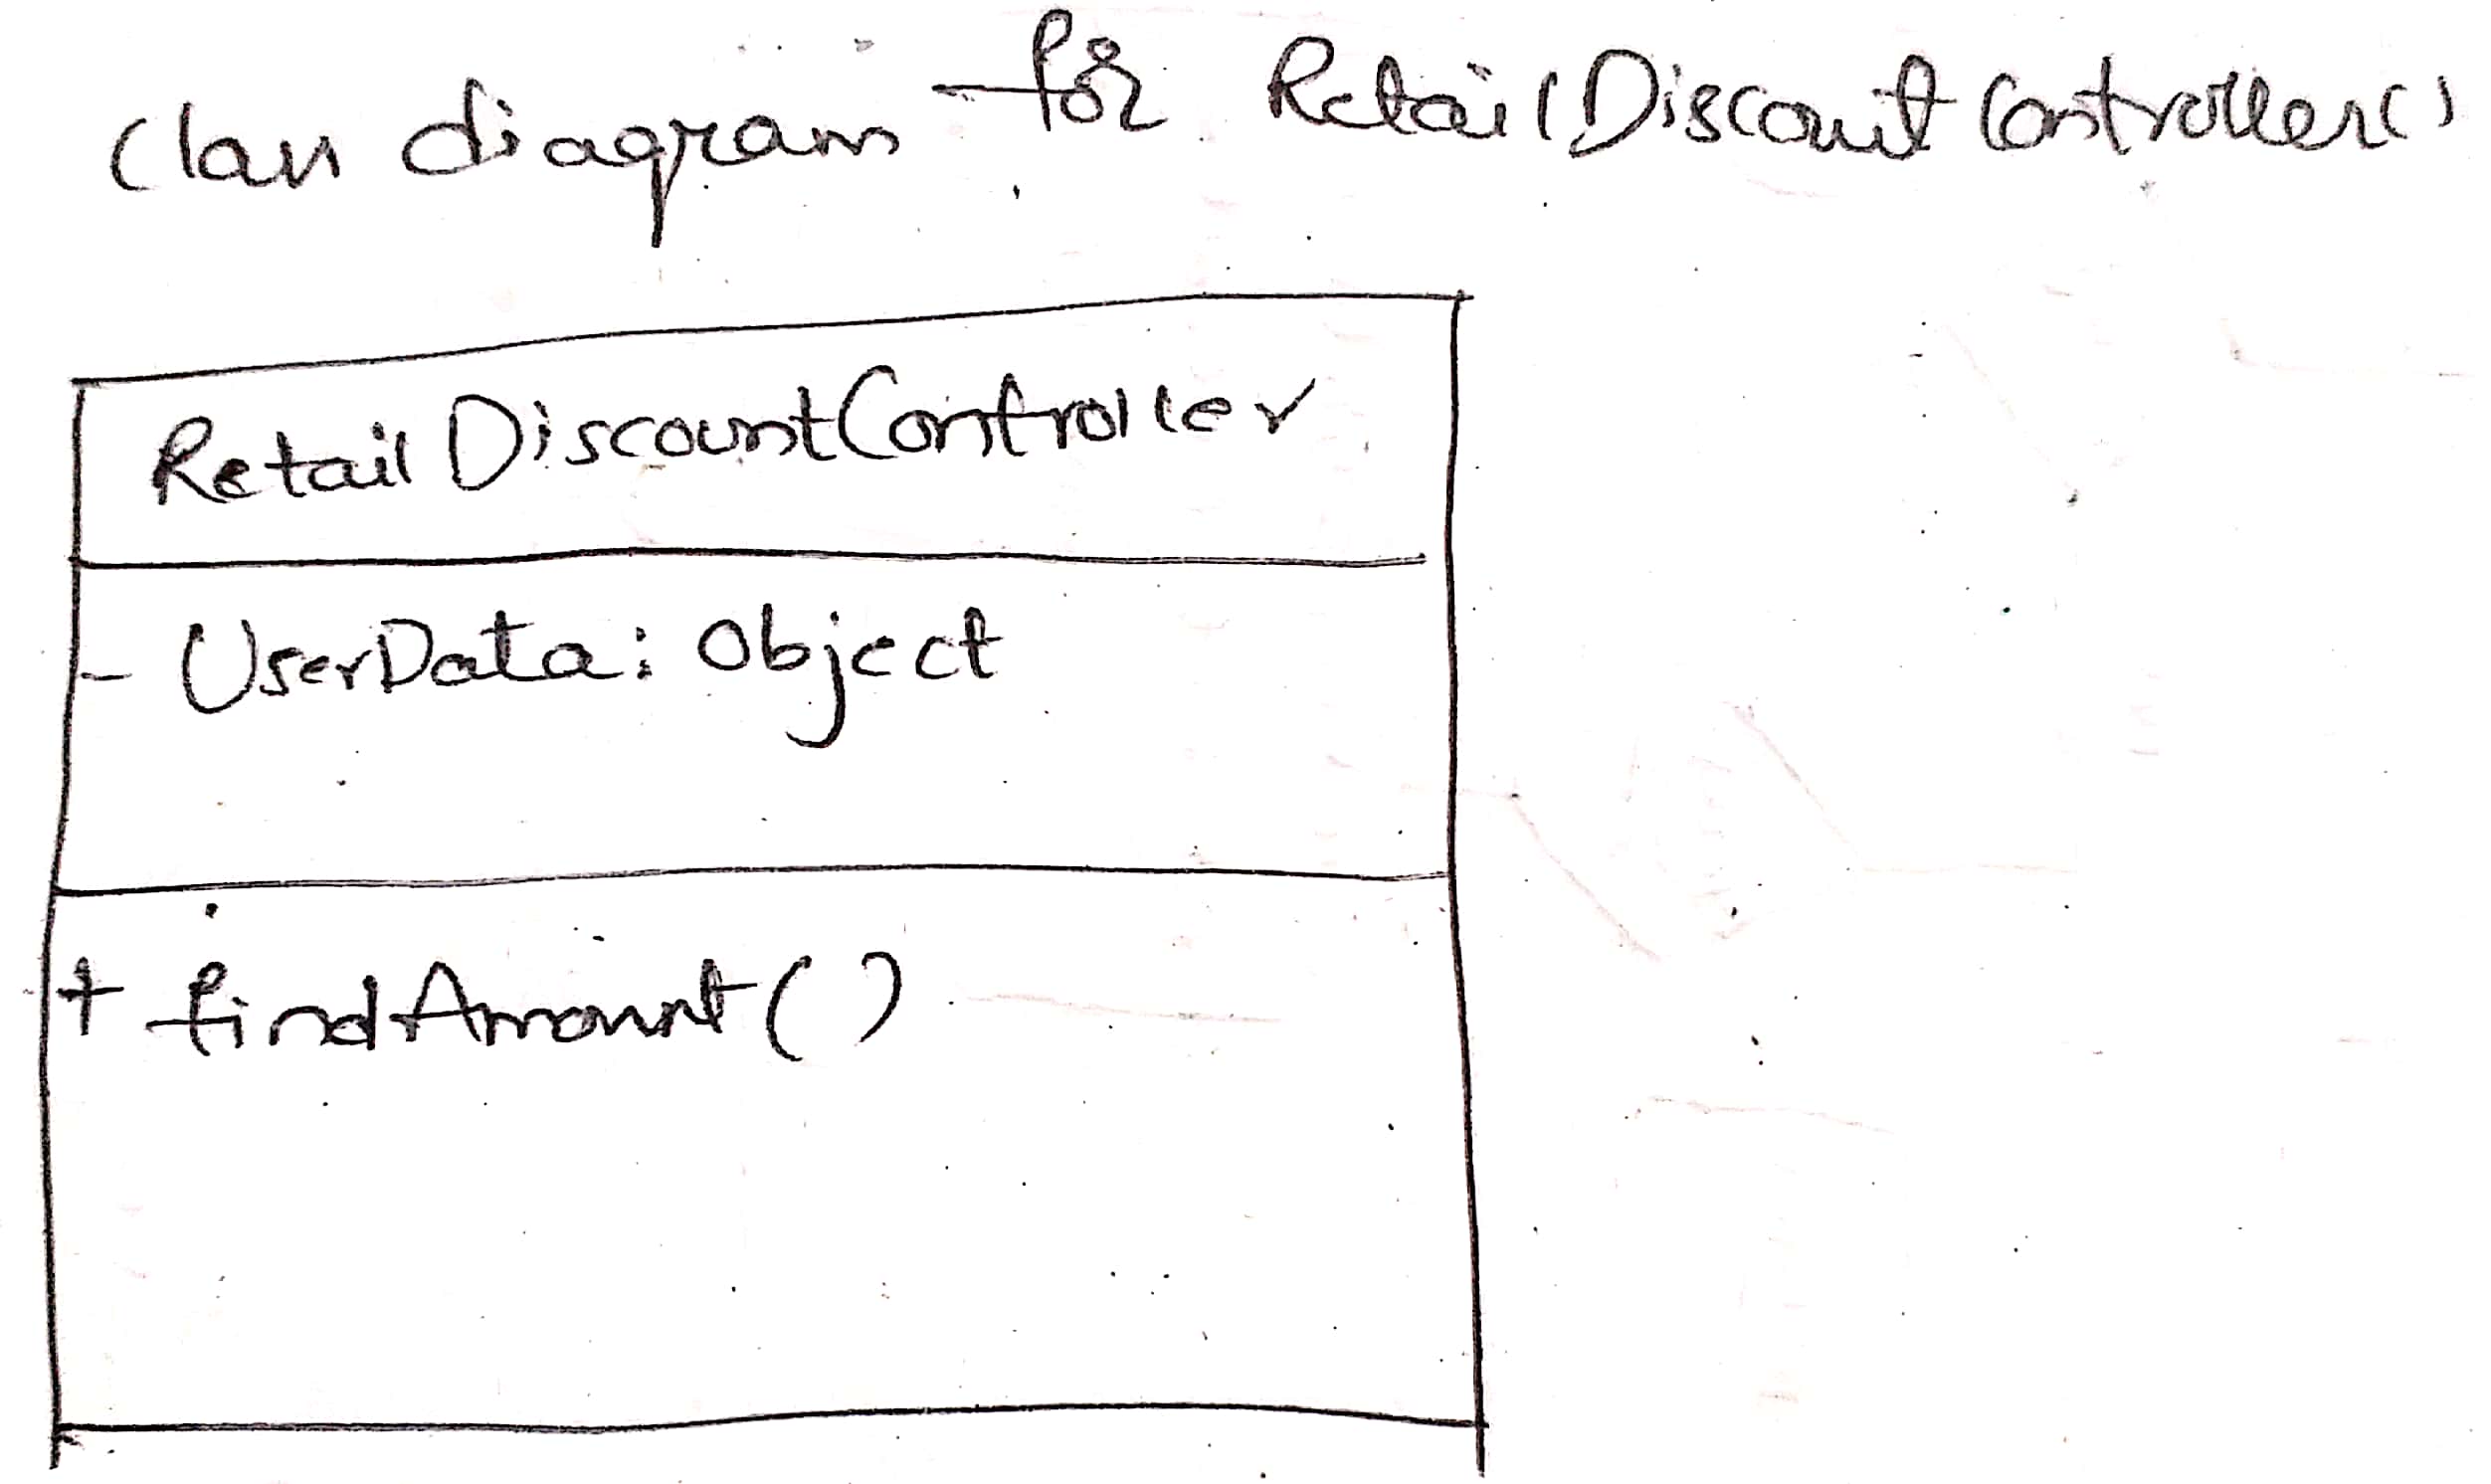 Class diagram for RetailDiscountController()
RetailDiscountController
- UserData: Object
+ findAmount()